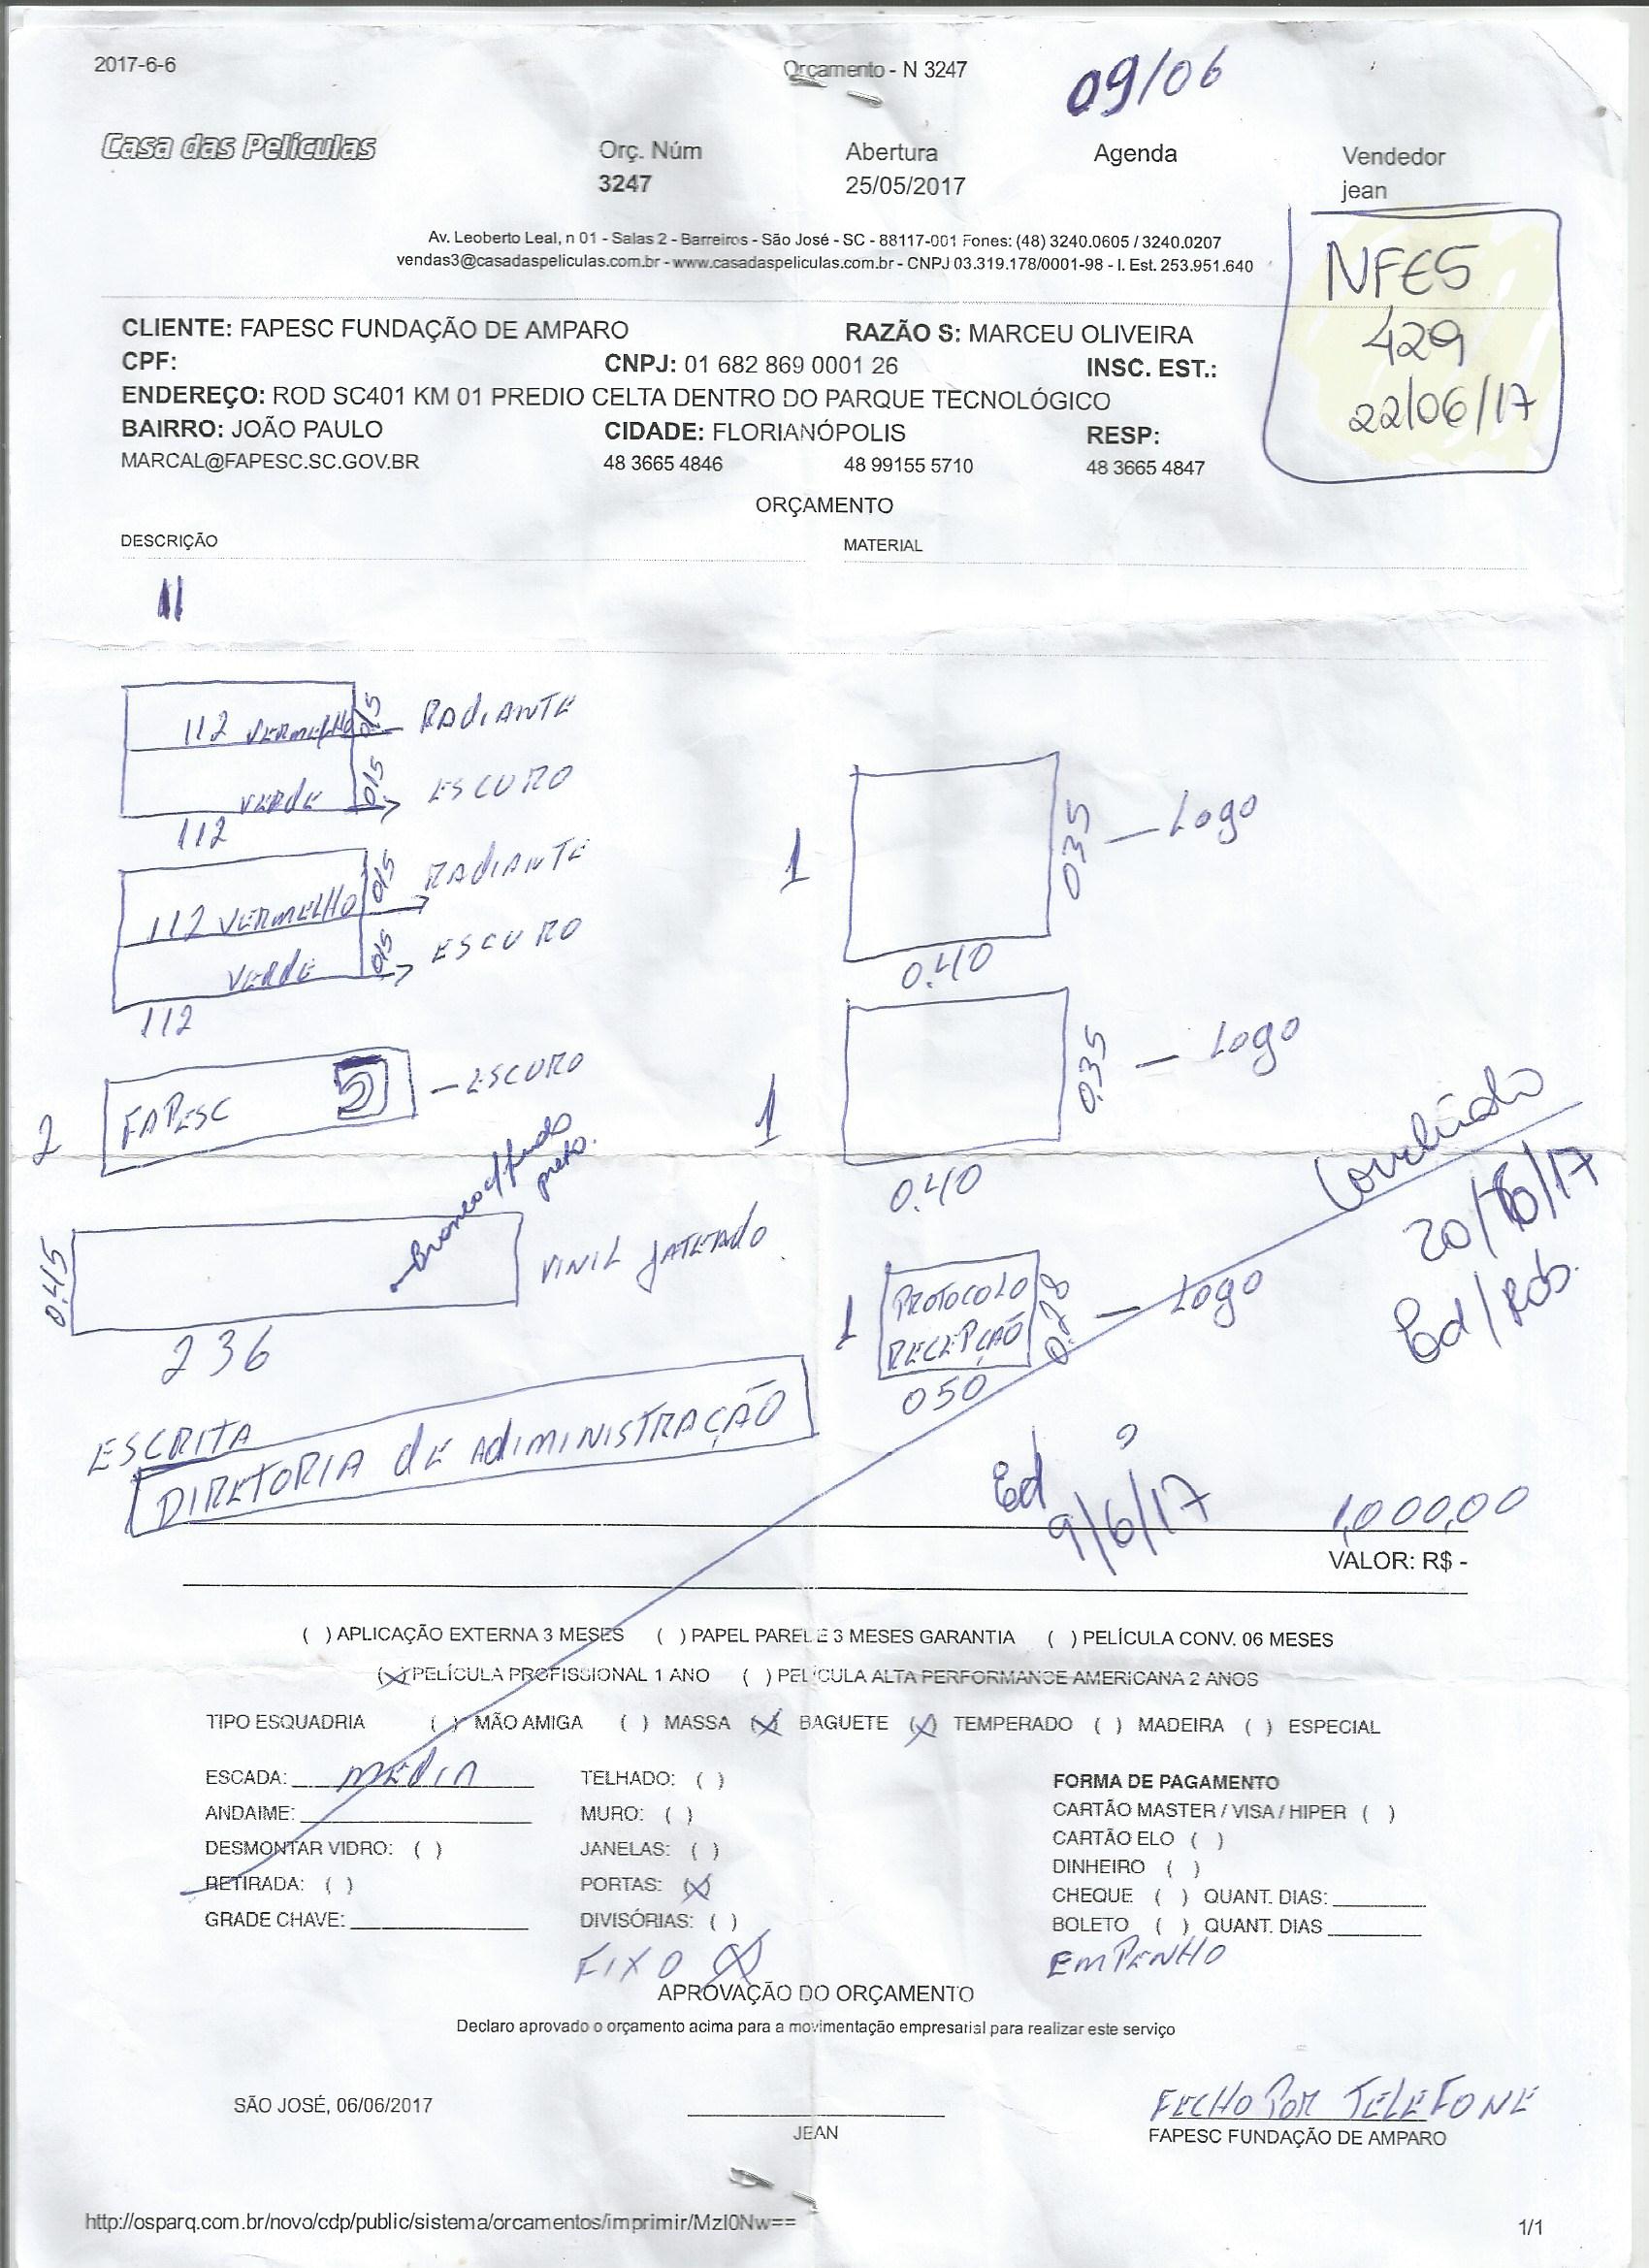 2017-6-6
Orçamento - N 3247
09/06
Casa das Peliculas
Orç. Núm
Abertura
Agenda
Vendedor
3247
25/05/2017
jean
Av. Leoberto Leal, n 01 - Salas 2 - Barreiros - São José - SC - 88117-001 Fones: (48) 3240.0605 / 3240.0207
vendas3@casadaspeliculas.com.br - www.casadaspeliculas.com.br - CNPJ 03.319.178/0001-98 - I. Est. 253.951.640
NFES
429
22/06/17
CLIENTE: FAPESC FUNDAÇÃO DE AMPARO
RAZÃO S: MARCEU OLIVEIRA
CPF:
CNPJ: 01 682 869 0001 26
INSC. EST.:
ENDEREÇO: ROD SC401 KM 01 PREDIO CELTA DENTRO DO PARQUE TECNOLÓGICO
BAIRRO: JOÃO PAULO
CIDADE: FLORIANÓPOLIS
RESP:
MARCAL@FAPESC.SC.GOV.BR
48 3665 4846
48 99155 5710
48 3665 4847
ORÇAMENTO
DESCRIÇÃO
MATERIAL
11
112 VERMELHO 015 RADIANTE
VERDE 015 ESCURO
112
112 VERMELHO 015 RADIANTE
VERDE 015 ESCURO
112
2 FAPESC - ESCURO
branco c/ fundo
preto.
0.45 VINIL JATEADO
236
ESCRITA
DIRETORIA dE ADIMINISTRAÇÃO
1 035 - Logo
0.40
1 035 - Logo
0.40
1 PROTOCOLO
RECEPÇÃO 0.28 - Logo
050
20/ /17
Ed/Rob.
Ed ?
9/6/17
1,000,00
VALOR: R$ -
( ) APLICAÇÃO EXTERNA 3 MESES ( ) PAPEL PAREDE 3 MESES GARANTIA ( ) PELÍCULA CONV. 06 MESES
(X) PELÍCULA PROFISSIONAL 1 ANO ( ) PELÍCULA ALTA PERFORMANCE AMERICANA 2 ANOS
TIPO ESQUADRIA ( ) MÃO AMIGA ( ) MASSA (X) BAGUETE (X) TEMPERADO ( ) MADEIRA ( ) ESPECIAL
ESCADA: MEDIA
ANDAIME:
DESMONTAR VIDRO: ( )
RETIRADA: ( )
GRADE CHAVE:
TELHADO: ( )
MURO: ( )
JANELAS: ( )
PORTAS: (X)
DIVISÓRIAS: ( )
FIXO (X)
FORMA DE PAGAMENTO
CARTÃO MASTER / VISA / HIPER ( )
CARTÃO ELO ( )
DINHEIRO ( )
CHEQUE ( ) QUANT. DIAS:
BOLETO ( ) QUANT. DIAS
EMPENHO
APROVAÇÃO DO ORÇAMENTO
Declaro aprovado o orçamento acima para a movimentação empresarial para realizar este serviço
SÃO JOSÉ, 06/06/2017
JEAN
FECHO POR TELEFONE
FAPESC FUNDAÇÃO DE AMPARO
http://osparq.com.br/novo/cdp/public/sistema/orcamentos/imprimir/MzI0Nw==
1/1